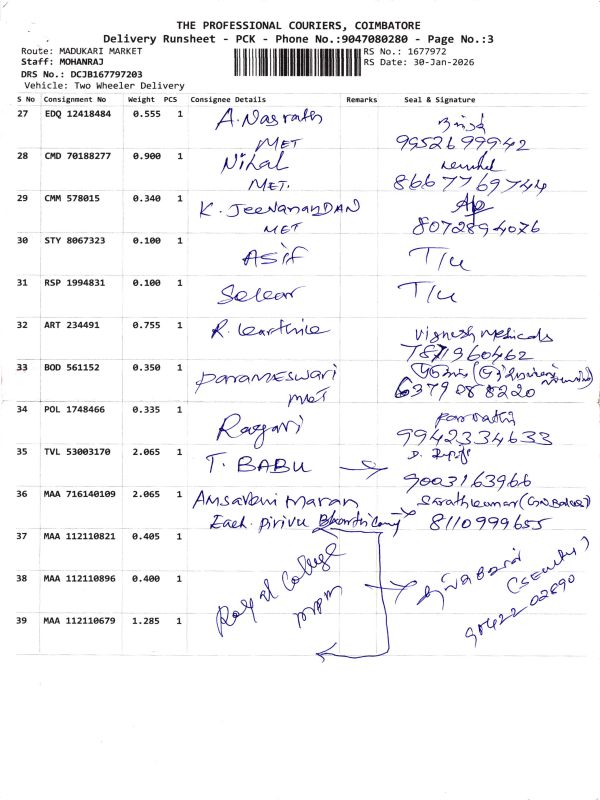 THE PROFESSIONAL COURIERS, COIMBATORE
Delivery Runsheet - PCK - Phone No.:9047080280 - Page No.:3
Route: MADUKARI MARKET
RS No.: 1677972
Staff: MOHANRAJ
RS Date: 30-Jan-2026
DRS No.: DCJB167797203
Vehicle: Two Wheeler Delivery
S No Consignment No Weight PCS Consignee Details Remarks Seal & Signature
27 EDQ 12418484 0.555 1 A. Nasrath
MET 9952699942
28 CMD 70188277 0.900 1 Nihal
MET. 8667769744
29 CMM 578015 0.340 1 K. JEEVANANDAN
MET 8072894076
30 STY 8067323 0.100 1 ASIF T/u
31 RSP 1994831 0.100 1 T/u
32 ART 234491 0.755 1 R. Vignesh Medicals
7871960462
33 BOD 561152 0.350 1 PARAMESWARI
MET 6379088220
34 POL 1748466 0.335 1
9942334633
35 TVL 53003170 2.065 1 T. BABU
9003163966
36 MAA 716140109 2.065 1 Sarathkumar
8110999655
37 MAA 112110821 0.405 1
38 MAA 112110896 0.400 1 Royal College
(Security)
39 MAA 112110679 1.285 1
90422 02890